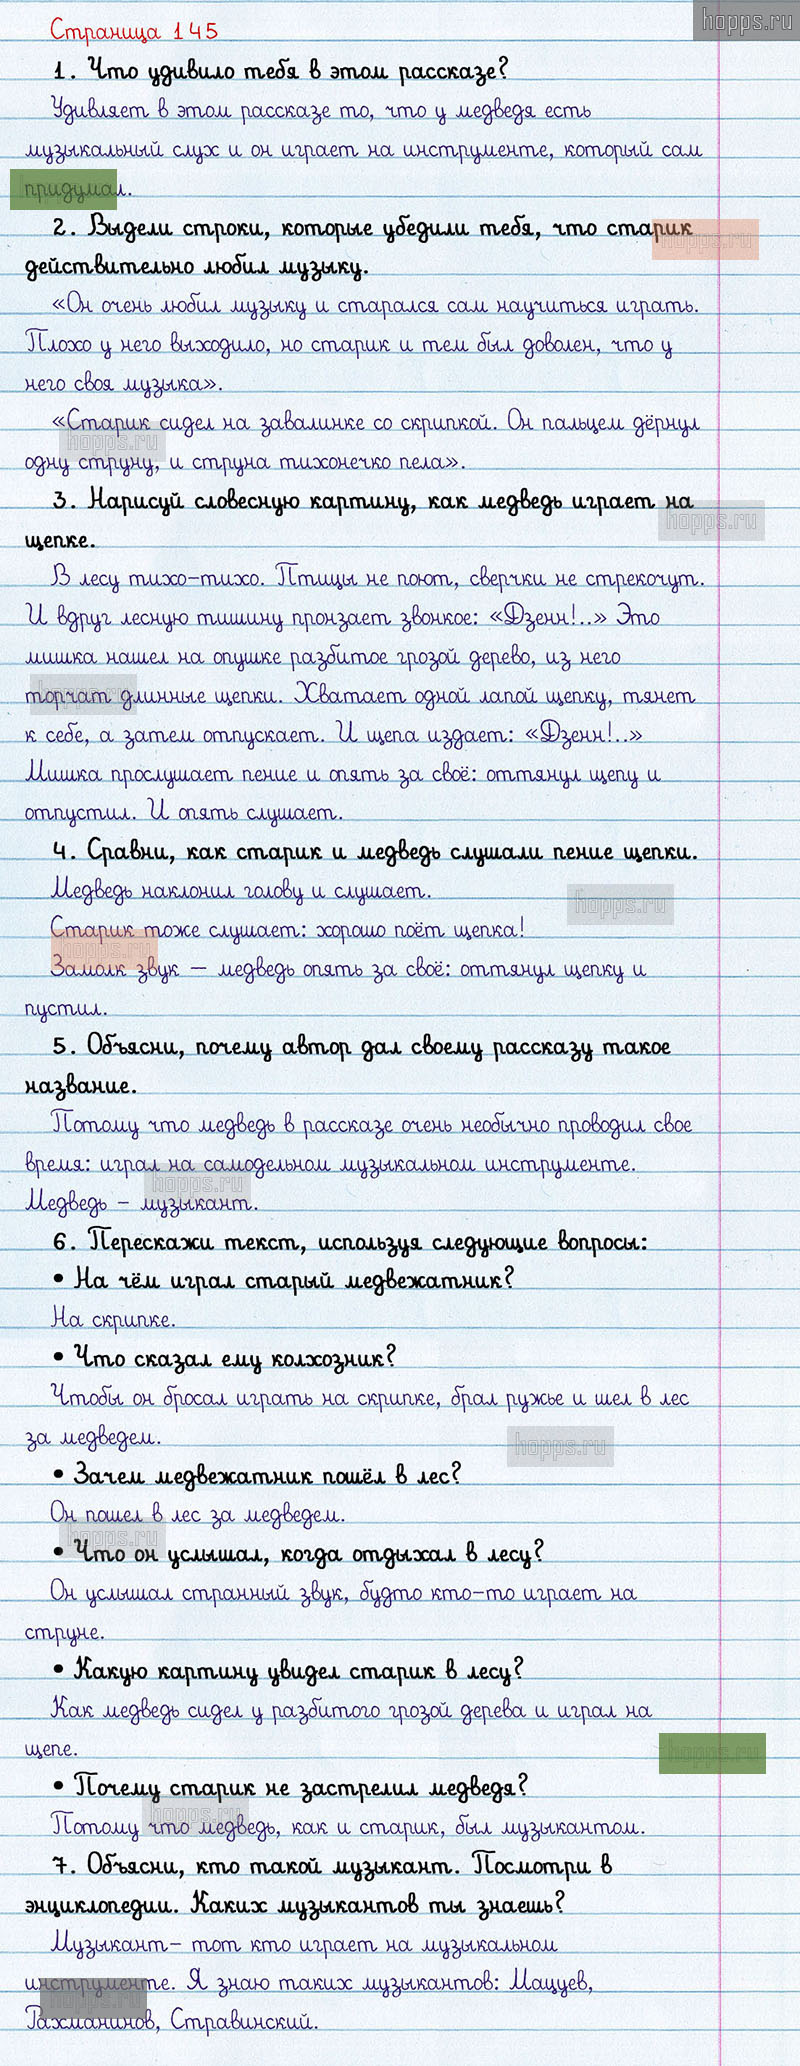 hopps.ru
Страница 145
1. Что удивило тебя в этом рассказе?
Удивляет в этом рассказе то, что у медведя есть
музыкальный слух и он играет на инструменте, который сам
придумал.
2. Выдели строки, которые убедили тебя, что старик
hopps.ru
действительно любил музыку.
«Он очень любил музыку и старался сам научиться играть.
Плохо у него выходило, но старик и тем был доволен, что у
него своя музыка».
«Старик сидел на завалинке со скрипкой. Он пальцем дёрнул
hopps.ru
одну струну, и струна тихонечко пела».
3. Нарисуй словесную картину, как медведь играет на
hopps.ru
щепке.
В лесу тихо-тихо. Птицы не поют, сверчки не стрекочут.
И вдруг лесную тишину пронзает звонкое: «Дзенн!..» Это
мишка нашел на опушке разбитое грозой дерево, из него
торчат длинные щепки. Хватает одной лапой щепку, тянет
hopps.ru
к себе, а затем отпускает. И щепа издает: «Дзенн!..»
Мишка прослушает пение и опять за своё: оттянул щепу и
отпустил. И опять слушает.
4. Сравни, как старик и медведь слушали пение щепки.
Медведь наклонил голову и слушает.
hopps.ru
Старик тоже слушает: хорошо поёт щепка!
hopps.ru
Замолк звук – медведь опять за своё: оттянул щепку и
пустил.
5. Объясни, почему автор дал своему рассказу такое
название.
Потому что медведь в рассказе очень необычно проводил свое
время: играл на самодельном музыкальном инструменте.
hopps.ru
Медведь – музыкант.
6. Перескажи текст, используя следующие вопросы:
• На чём играл старый медвежатник?
На скрипке.
• Что сказал ему колхозник?
Чтобы он бросал играть на скрипке, брал ружье и шел в лес
за медведем.
hopps.ru
• Зачем медвежатник пошёл в лес?
Он пошел в лес за медведем.
hopps.ru
• Что он услышал, когда отдыхал в лесу?
Он услышал странный звук, будто кто-то играет на
струне.
• Какую картину увидел старик в лесу?
Как медведь сидел у разбитого грозой дерева и играл на
щепе.
hopps.ru
• Почему старик не застрелил медведя?
hopps.ru
Потому что медведь, как и старик, был музыкантом.
7. Объясни, кто такой музыкант. Посмотри в
энциклопедии. Каких музыкантов ты знаешь?
Музыкант– тот кто играет на музыкальном
инструменте. Я знаю таких музыкантов: Мацуев,
hopps.ru
Рахманинов, Стравинский.